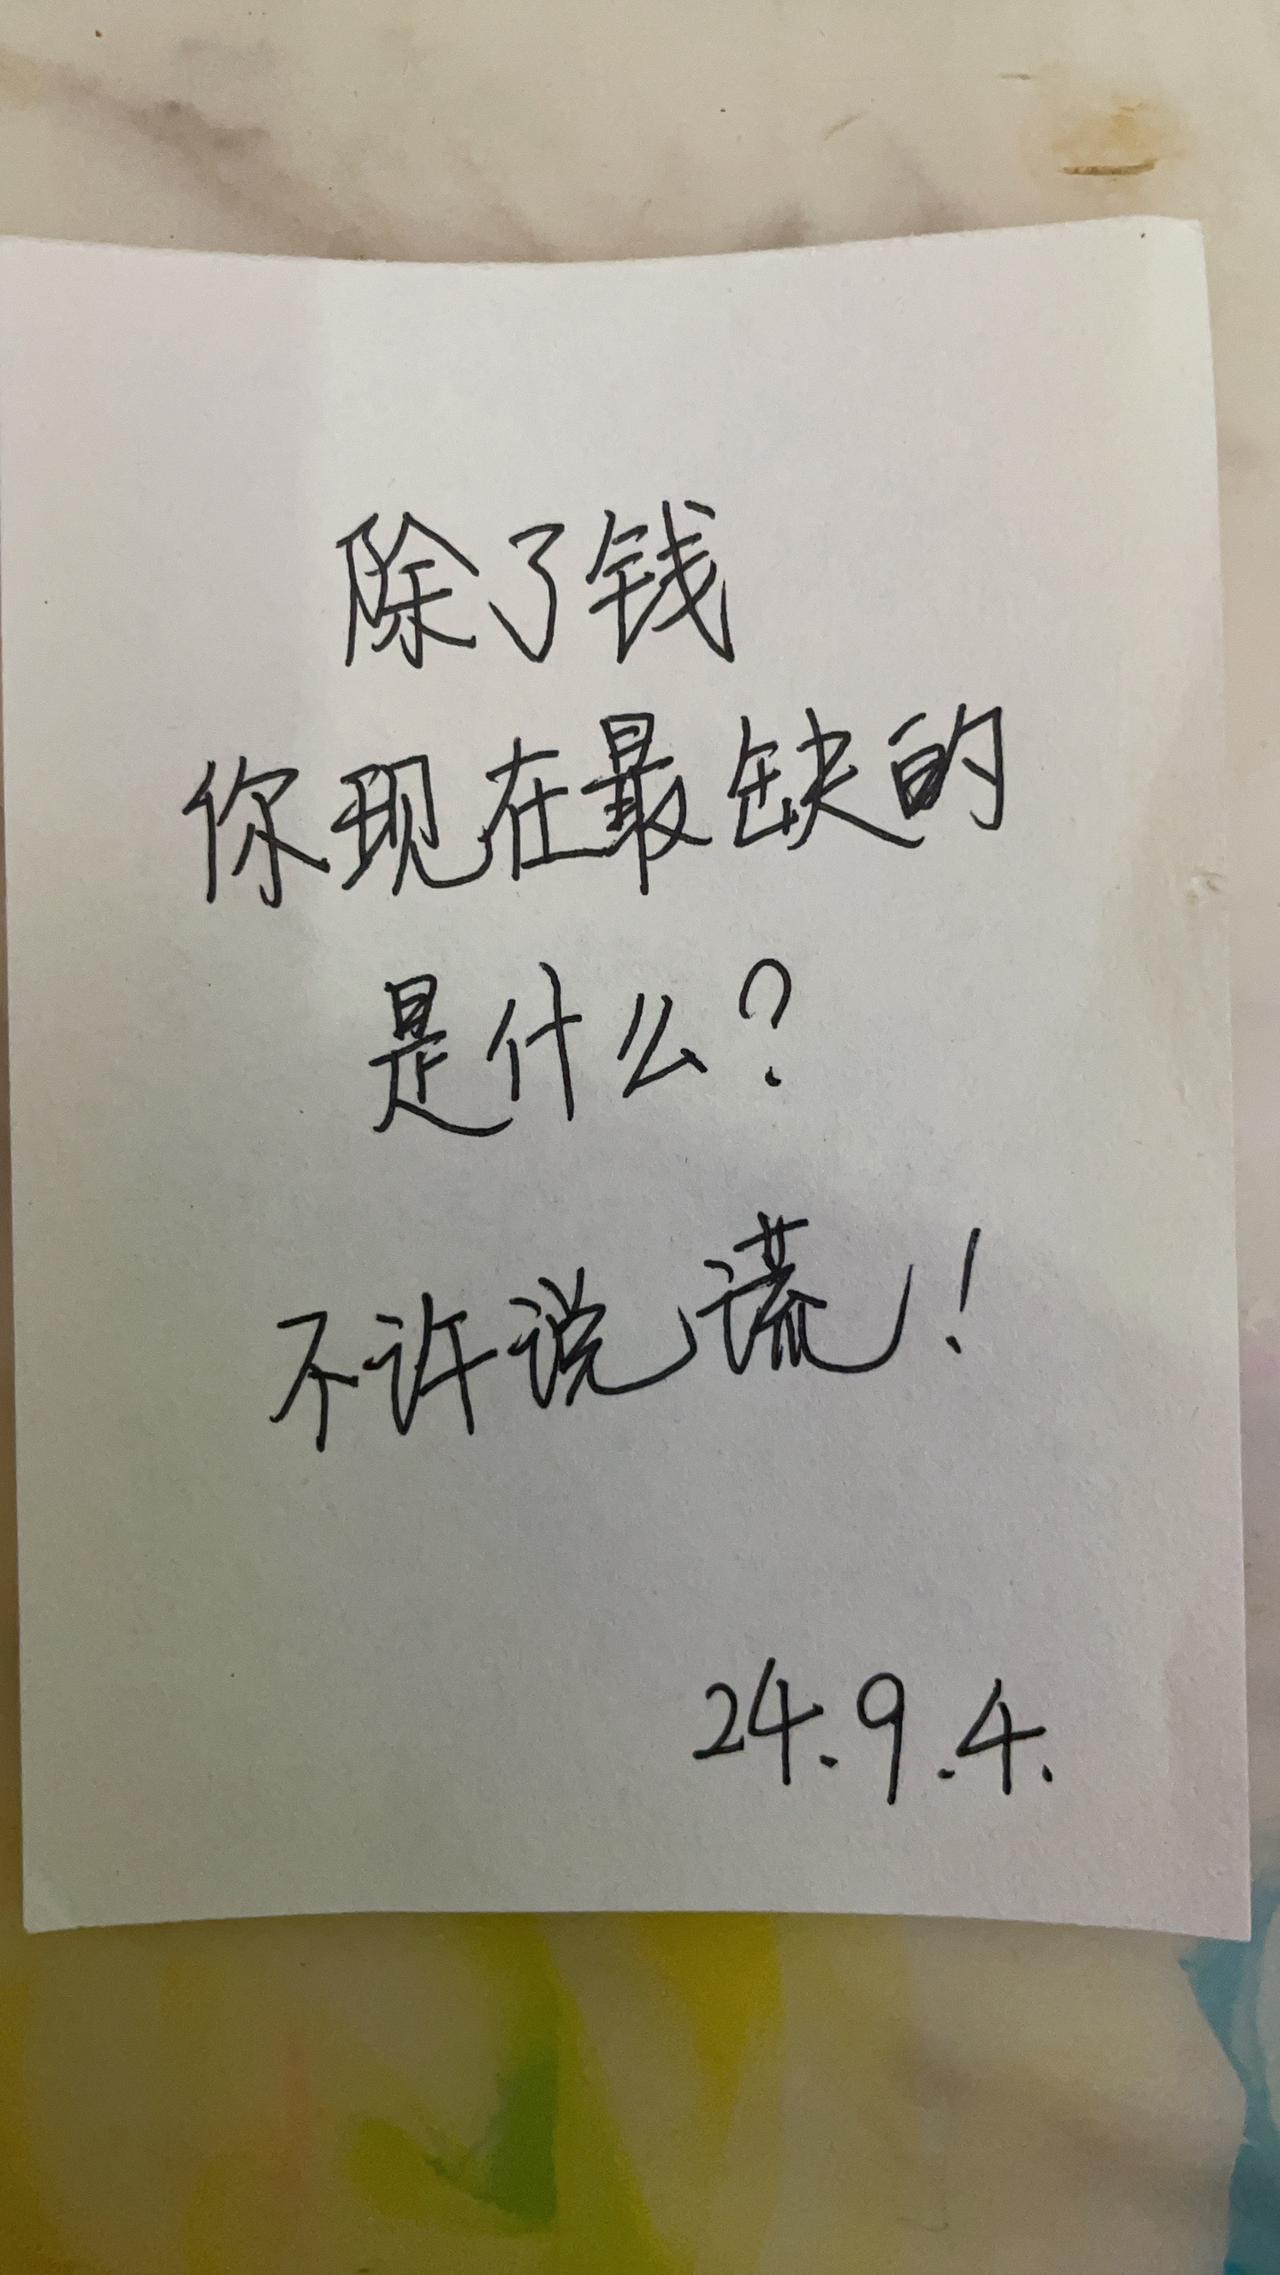 除了钱
你现在最缺的
是什么?
不许说谎!
24.9.4.